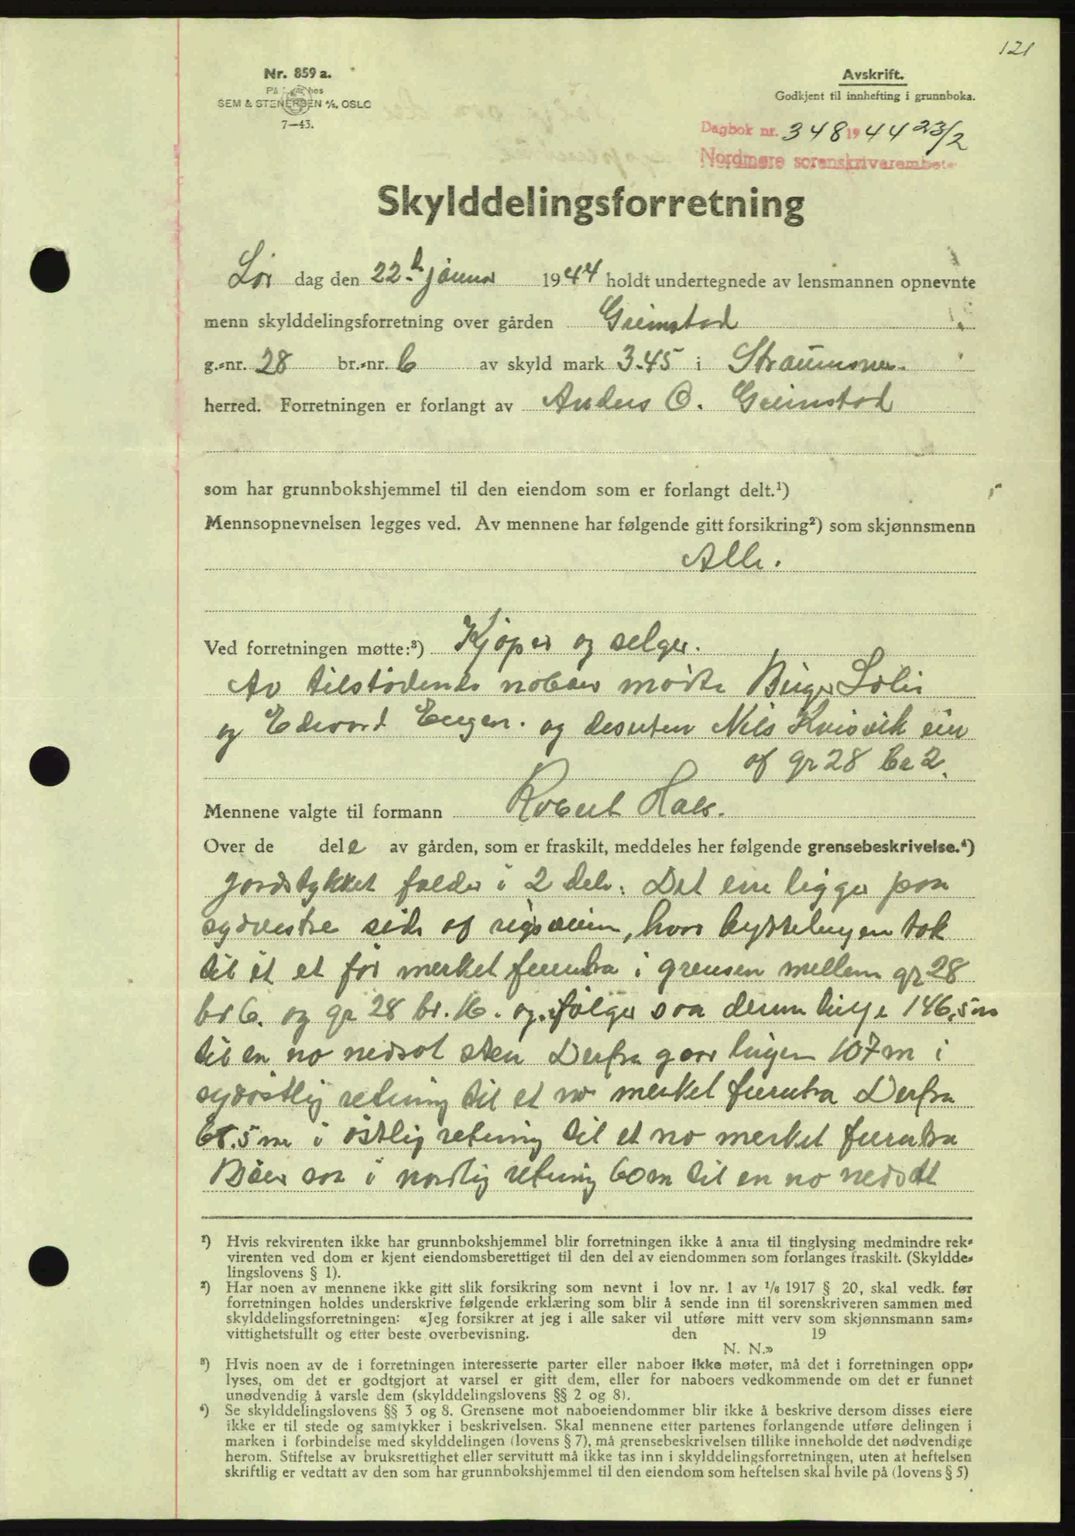 121
Nr. 859 a.
På lager hos
SEM & STENERSEN A/S, OSLO
7—43.
Avskrift.
Godkjent til innhefting i grunnboka.
Dagbok nr. 348 1944 23/2
Nordmøre sorenskriverembete
Skylddelingsforretning
Lør dag den 22. januar 1944 holdt undertegnede av lensmannen opnevnte
menn skylddelingsforretning over gården Grimstad
g.-nr. 28 br.-nr. 6 av skyld mark 3.45 i Straumsnes
herred. Forretningen er forlangt av Anders O. Grimstad
som har grunnbokshjemmel til den eiendom som er forlangt delt.¹)
Mennsopnevnelsen legges ved. Av mennene har følgende gitt forsikring²) som skjønnsmenn
Alle.
Ved forretningen møtte:³) Kjøper og selger.
Av tilstødende naboer møtte Birger Solli
og Edvard Engen. og desuten Nils Kvisvik eier
af gr 28 br 2.
Mennene valgte til formann Robert Hals.
Over de dele av gården, som er fraskilt, meddeles her følgende grensebeskrivelse.⁴)
Jordstykket falder i 2 dele: Det ene ligger paa
sydvestre side af veien, hvor byttelinjen tok
til i et før merket furutre i grensen mellem gr 28
br 6. og gr 28 br. 16. og følger saa denne linje 146,5 m
til en no nedsat sten Derfra gaar linjen 107 m i
sydøstlig retning til et no merket furutre Derfra
68.5 m i østlig retning til et no merket furutre
Bøier saa i nordlig retning 60 m til en no nedsat
¹) Hvis rekvirenten ikke har grunnbokshjemmel blir forretningen ikke å anta til tinglysing medmindre rek-
virenten ved dom er kjent eiendomsberettiget til den del av eiendommen som forlanges fraskilt. (Skyldde-
lingslovens § 1).
²) Har noen av mennene ikke gitt slik forsikring som nevnt i lov nr. 1 av 1/6 1917 § 20, skal vedk. før
forretningen holdes underskrive følgende erklæring som blir å sende inn til sorenskriveren sammen med
skylddelingsforretningen: «Jeg forsikrer at jeg i alle saker vil utføre mitt verv som skjønnsmann sam-
vittighetsfullt og etter beste overbevisning. den 19
N. N.»
³) Hvis noen av de i forretningen interesserte parter eller naboer ikke møter, må det i forretningen opp-
lyses, om det er godtgjort at varsel er gitt dem, eller for naboers vedkommende om det er funnet
unødvendig å varsle dem (skylddelingslovens §§ 2 og 8).
⁴) Se skylddelingslovens §§ 3 og 8. Grensene mot naboeiendommer blir ikke å beskrive dersom disses eiere
ikke er til stede og samtykker i beskrivelsen. Skal mennene etter partenes forlangende utføre delingen i
marken i forbindelse med skylddelingen (lovens § 7), må grensebeskrivelsen tillike inneholde det nødvendige
herom. Stiftelse av bruksrettighet eller servitutt må ikke tas inn i skylddelingsforretningen, uten at heftelsen
skriftlig er vedtatt av den som har grunnbokshjemmel til den eiendom som heftelsen skal hvile på (lovens § 5)